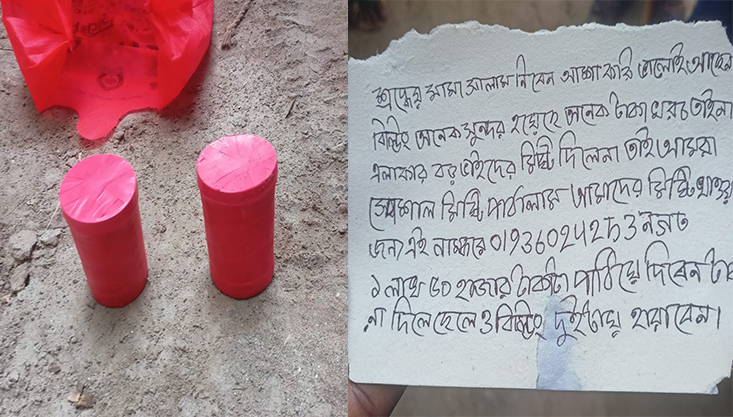 শ্রদ্ধেয় মামা সালাম নিবেন আশা করি ভালোই আছেন
বিল্ডিং অনেক সুন্দর হয়েছে অনেক টাকা খরচ তাইনা
এলাকার বড় ভাইদের মিষ্টি দিলেনা তাই আমরা
স্পেশাল মিষ্টি পাঠালাম আমাদের মিষ্টি খাওয়ার
জন্য এই নাম্বারে নগত
১ লাখ ৫০ হাজার টাকাটা পাঠিয়ে দিবেন টাকা
না দিলে ছেলে ও বিল্ডিং দুইটায় হারাবেন।